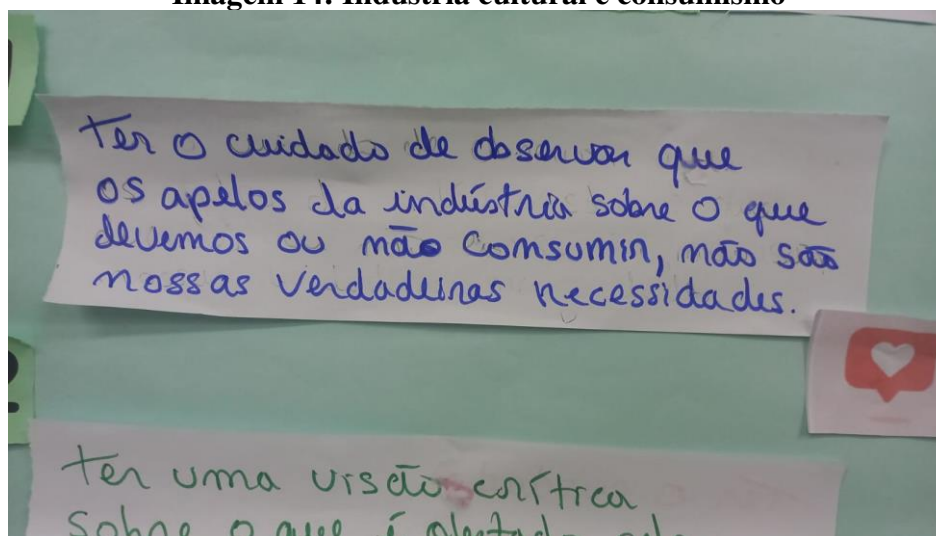 Imagem 14: Indústria cultural e consumismo
Ter o cuidado de observar que
os apelos da indústria sobre o que
devemos ou não consumir, não são
nossas verdadeiras necessidades.
ter uma visão crítica
sobre o que é